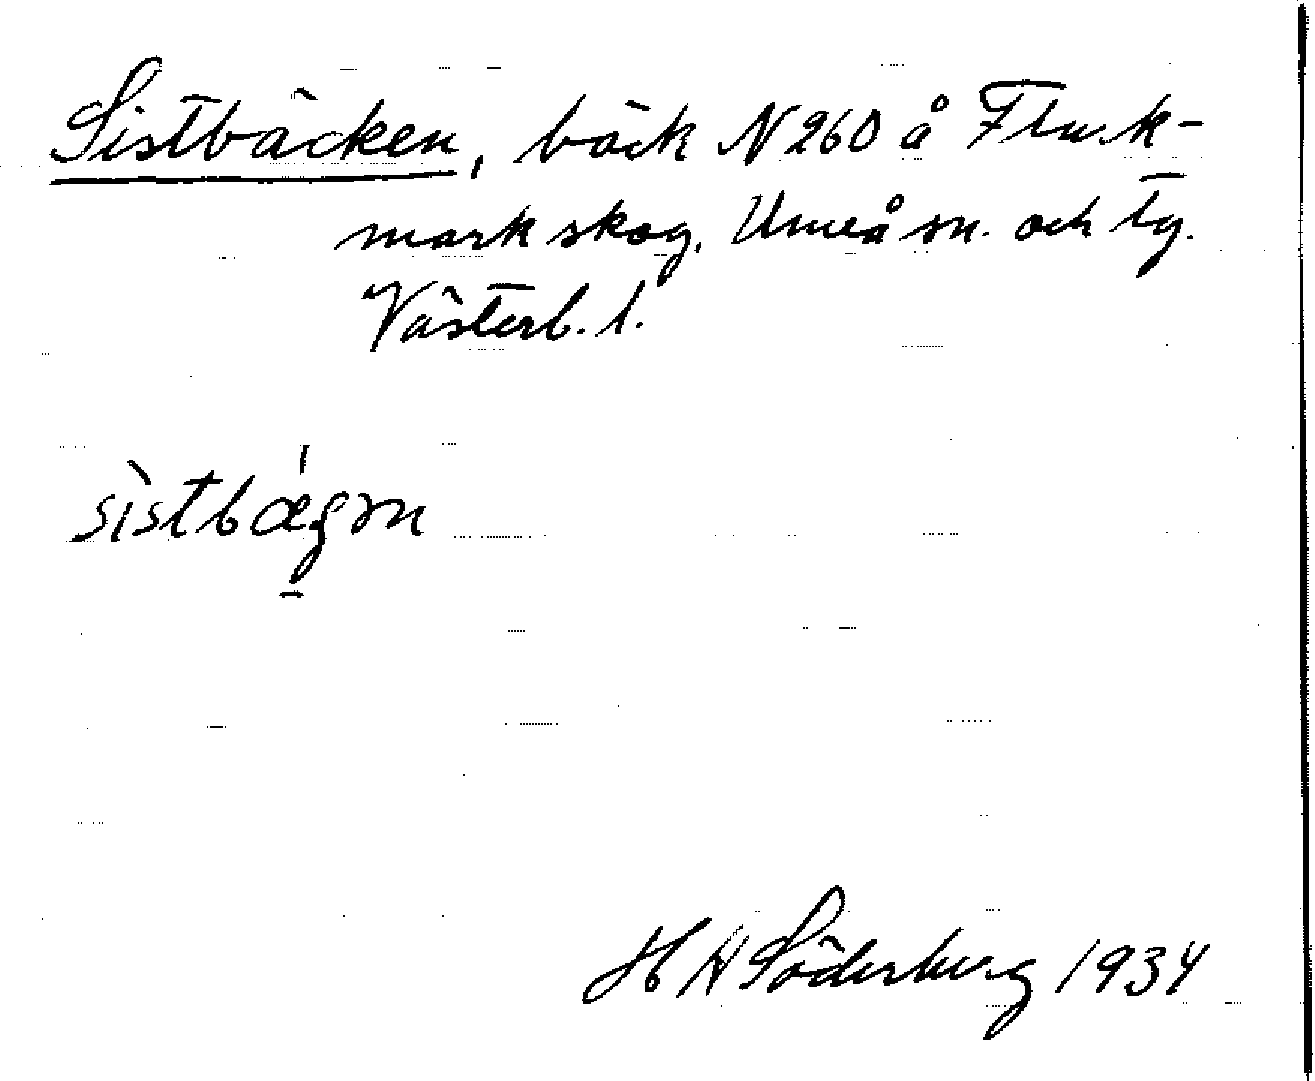 Sistbäcken, bäck N 260 å Flurk-
mark skog, Umeå sn. och tg.
Västerb. l.
sìstbǽgɔn
H A Söderberg 1934